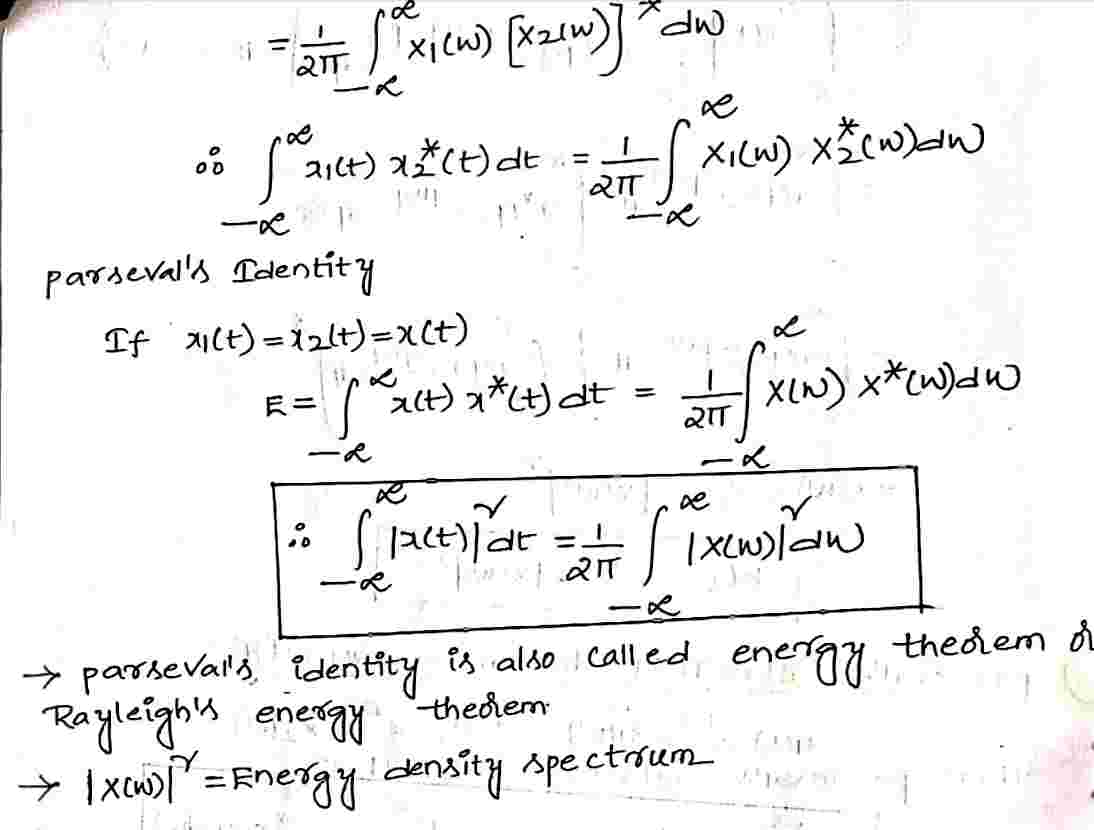 = 1/2π ∫_{-∞}^{∞} X1(ω) [X2(ω)]* dω
∴ ∫_{-∞}^{∞} x1(t) x2*(t) dt = 1/2π ∫_{-∞}^{∞} X1(ω) X2*(ω) dω
parseval's Identity
If x1(t) = x2(t) = x(t)
E = ∫_{-∞}^{∞} x(t) x*(t) dt = 1/2π ∫_{-∞}^{∞} X(ω) X*(ω) dω
∴ ∫_{-∞}^{∞} |x(t)|² dt = 1/2π ∫_{-∞}^{∞} |X(ω)|² dω
→ parseval's identity is also called energy theorem or
Rayleigh's energy theorem
→ |X(ω)|² = Energy density spectrum